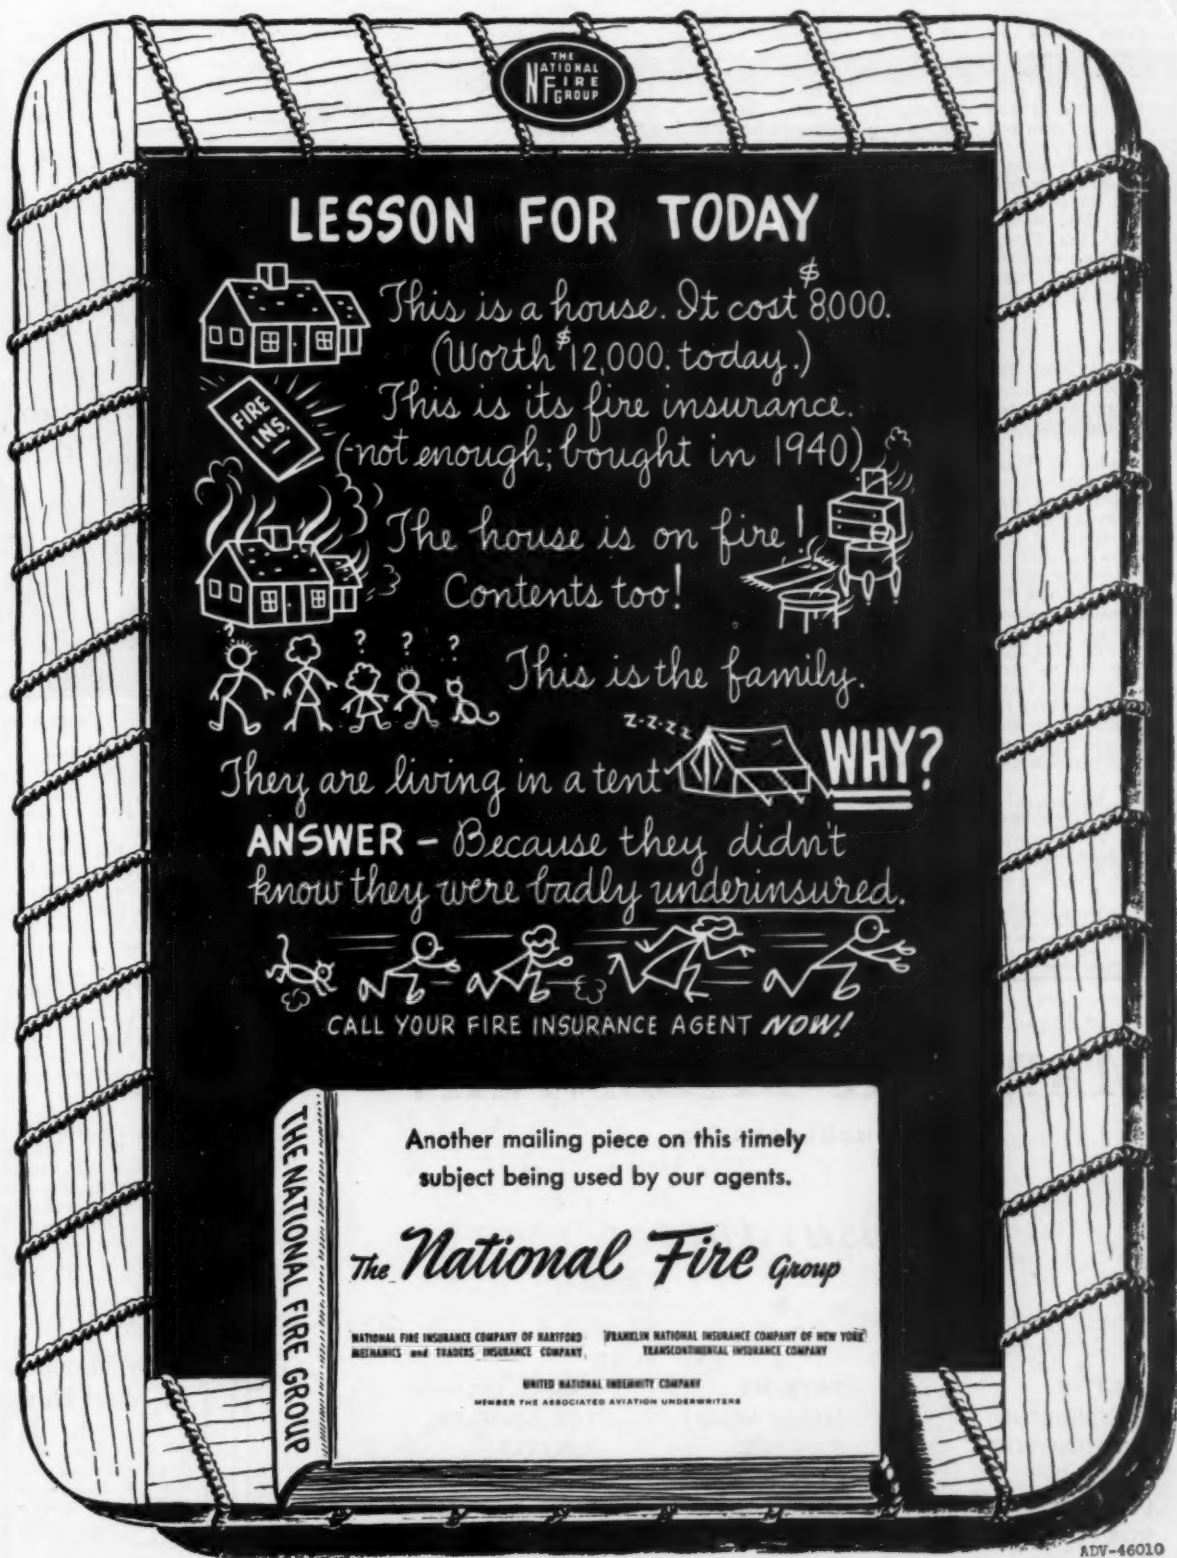 THE
NATIONAL
FIRE
GROUP
LESSON FOR TODAY
This is a house. It cost $8,000.
(Worth $12,000. today.)
FIRE
INS.
This is its fire insurance.
(-not enough; bought in 1940)
The house is on fire!
Contents too!
? ? ? ?
This is the family.
z-z-z-z
They are living in a tent WHY?
ANSWER – Because they didn't
know they were badly underinsured.
CALL YOUR FIRE INSURANCE AGENT NOW!
THE NATIONAL FIRE GROUP
Another mailing piece on this timely
subject being used by our agents.
The National Fire Group
NATIONAL FIRE INSURANCE COMPANY OF HARTFORD FRANKLIN NATIONAL INSURANCE COMPANY OF NEW YORK
MECHANICS and TRADERS INSURANCE COMPANY TRANSCONTINENTAL INSURANCE COMPANY
UNITED NATIONAL INDEMNITY COMPANY
MEMBER THE ASSOCIATED AVIATION UNDERWRITERS
ADV-46010